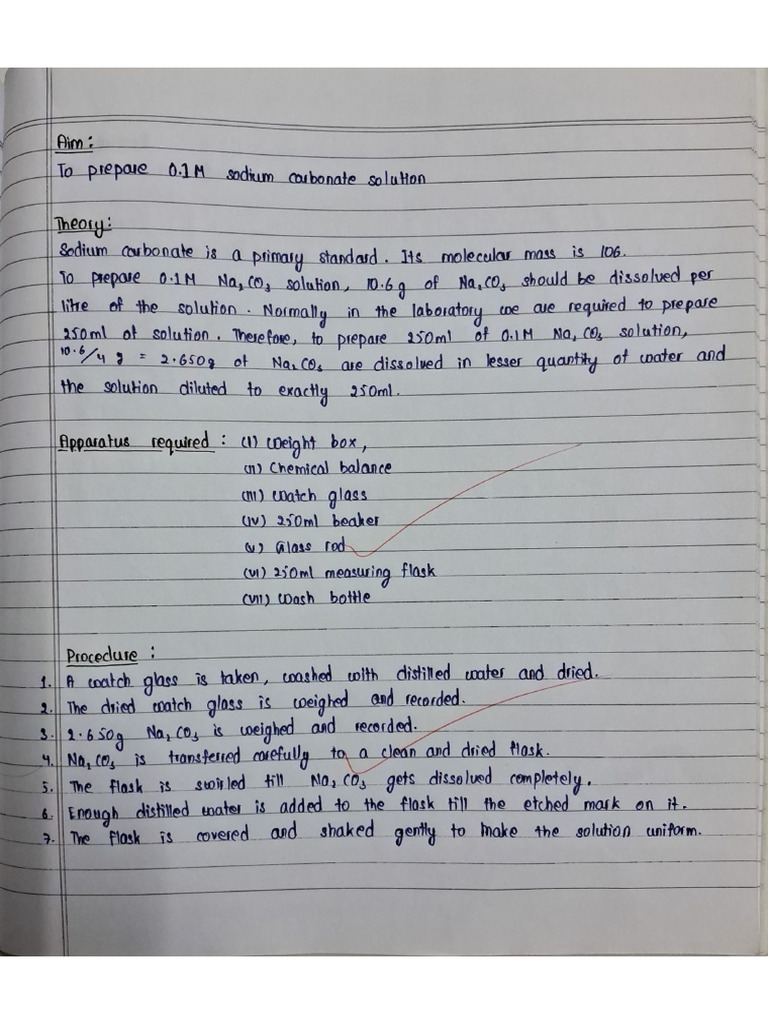 Aim:
To prepare 0.1M sodium carbonate solution
Theory:
Sodium carbonate is a primary standard. Its molecular mass is 106.
To prepare 0.1M Na₂CO₃ solution, 10.6g of Na₂CO₃ should be dissolved per
litre of the solution. Normally in the laboratory we are required to prepare
250ml of solution. Therefore, to prepare 250ml of 0.1M Na₂CO₃ solution,
10.6/4 g = 2.650g of Na₂CO₃ are dissolved in lesser quantity of water and
the solution diluted to exactly 250ml.
Apparatus required : (I) Weight box,
(II) Chemical balance
(III) Watch glass
(IV) 250ml beaker
(V) Glass rod
(VI) 250ml measuring flask
(VII) Wash bottle
Procedure :
1. A watch glass is taken, washed with distilled water and dried.
2. The dried watch glass is weighed and recorded.
3. 2.650g Na₂CO₃ is weighed and recorded.
4. Na₂CO₃ is transferred carefully to a clean and dried flask.
5. The flask is swirled till Na₂CO₃ gets dissolved completely.
6. Enough distilled water is added to the flask till the etched mark on it.
7. The flask is covered and shaked gently to make the solution uniform.